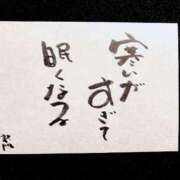 寒いが
すぎて
眠くなる